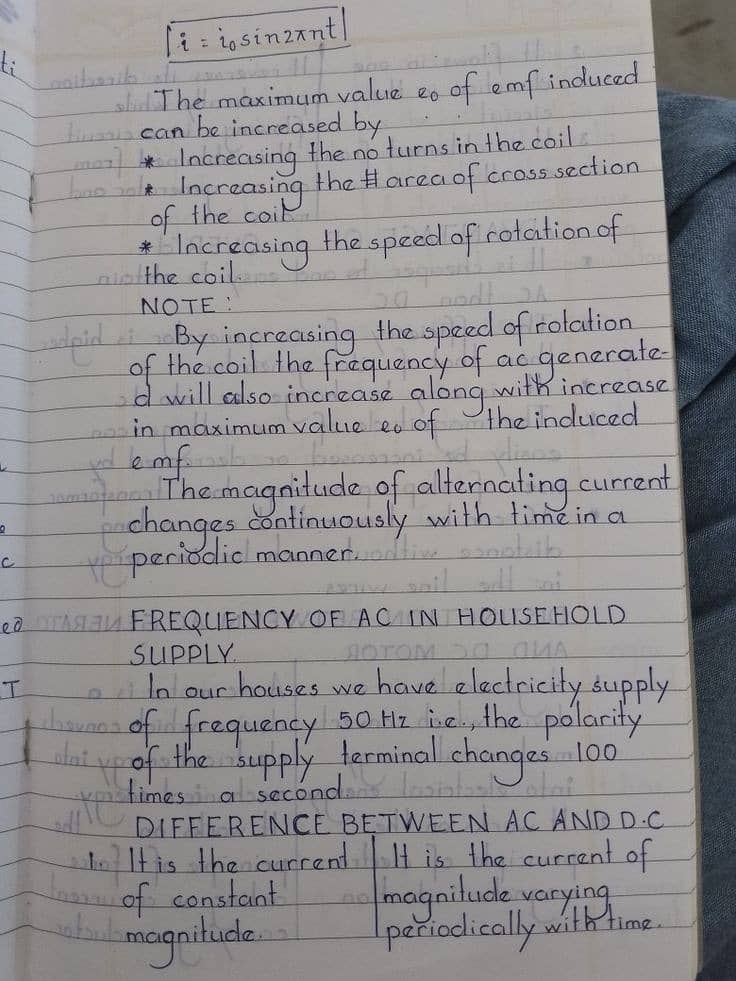 i = i₀sin2πnt
ti
The maximum value e₀ of emf induced
can be increased by
* Increasing the no turns in the coil
* Increasing the area of cross section
of the coil
* Increasing the speed of rotation of
the coil.
NOTE :
By increasing the speed of rotation
of the coil the frequency of ac generate-
d will also increase along with increase
in maximum value e₀ of the induced
emf.
The magnitude of alternating current
changes continuously with time in a
periodic manner.
FREQUENCY OF AC IN HOUSEHOLD
SUPPLY.
T
In our houses we have electricity supply
of frequency 50 Hz i.e., the polarity
of the supply terminal changes 100
times a second.
DIFFERENCE BETWEEN AC AND D.C
It is the current | It is the current of
of constant | magnitude varying
magnitude. | periodically with time.